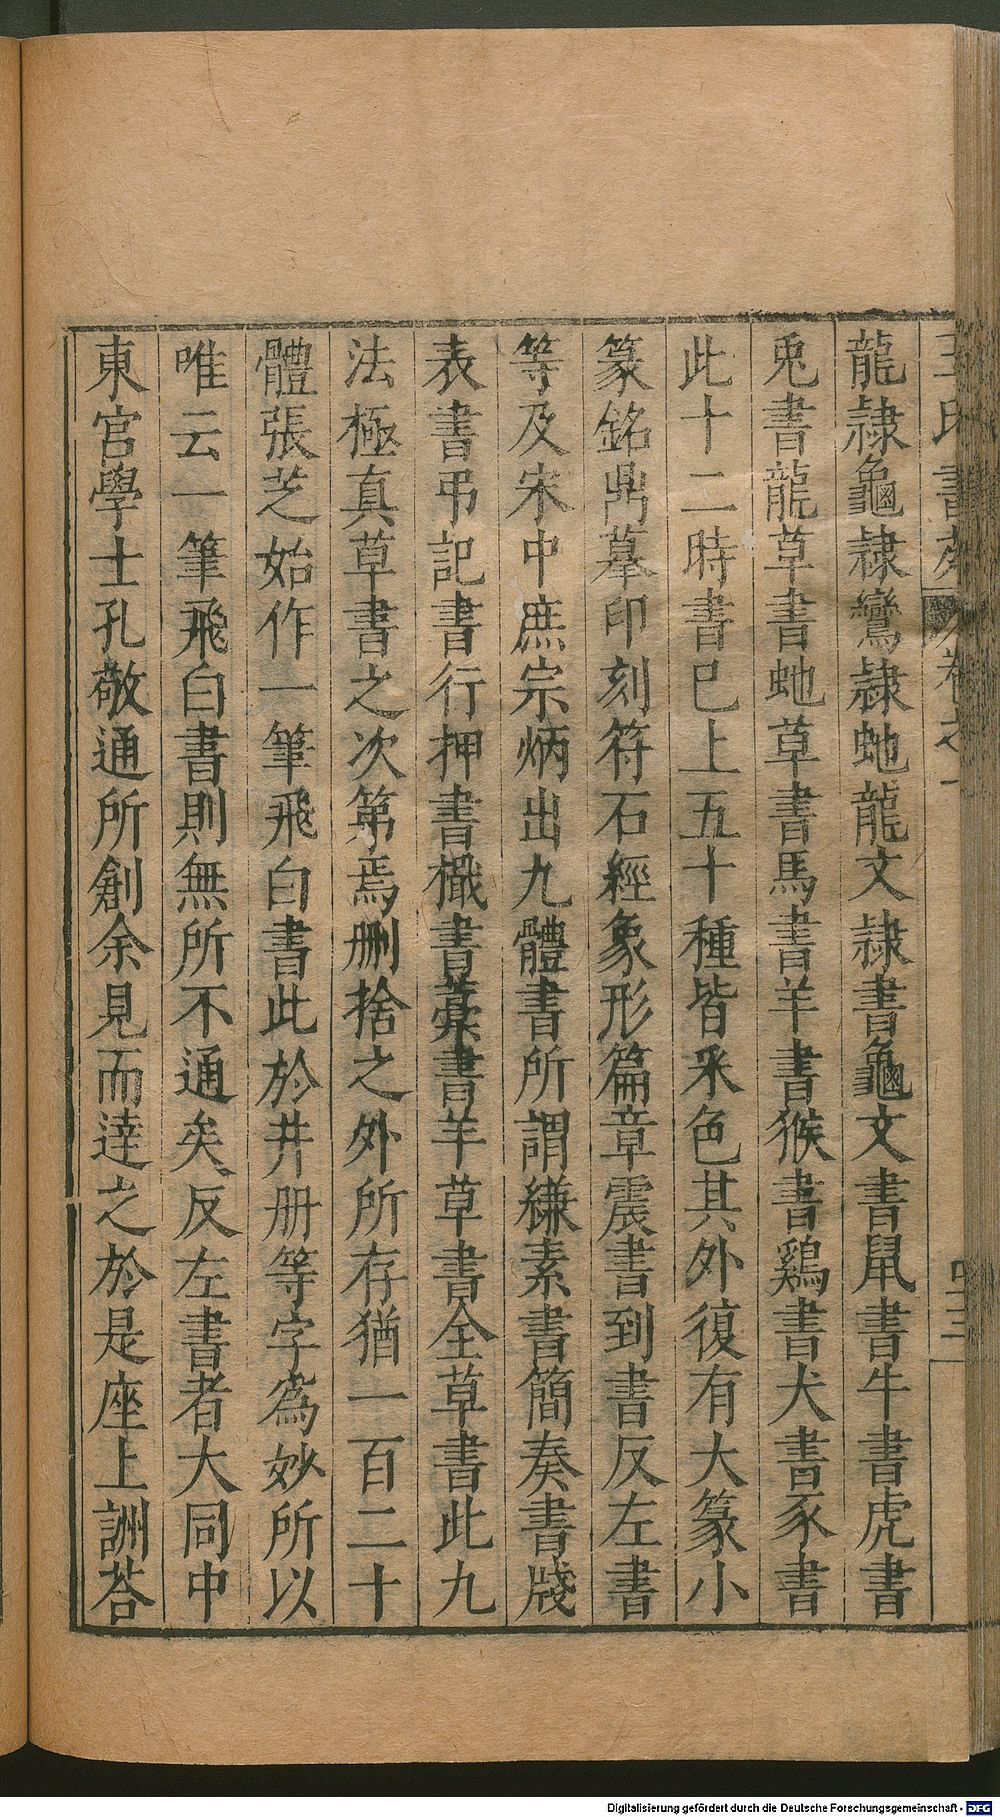 王氏書苑 卷之一 四三
龍隷龜隷鸞隷虵龍文隷書龜文書鼠書牛書虎書
兎書龍草書虵草書馬書羊書猴書鷄書犬書豕書
此十二時書已上五十種皆釆色其外復有大篆小
篆銘鼎摹印刻符石經象形篇章震書到書反左書
等及宋中庶宗炳出九體書所謂縑素書簡奏書牋
表書弔記書行押書檝書藁書半草書全草書此九
法極真草書之次第焉删捨之外所存猶一百二十
體張芝始作一筆飛白書此於井册等字為妙所以
唯云一筆飛白書則無所不通矣反左書者大同中
東宫學士孔敬通所創余見而達之於是座上詶荅
Digitalisierung gefördert durch die Deutsche Forschungsgemeinschaft - DFG